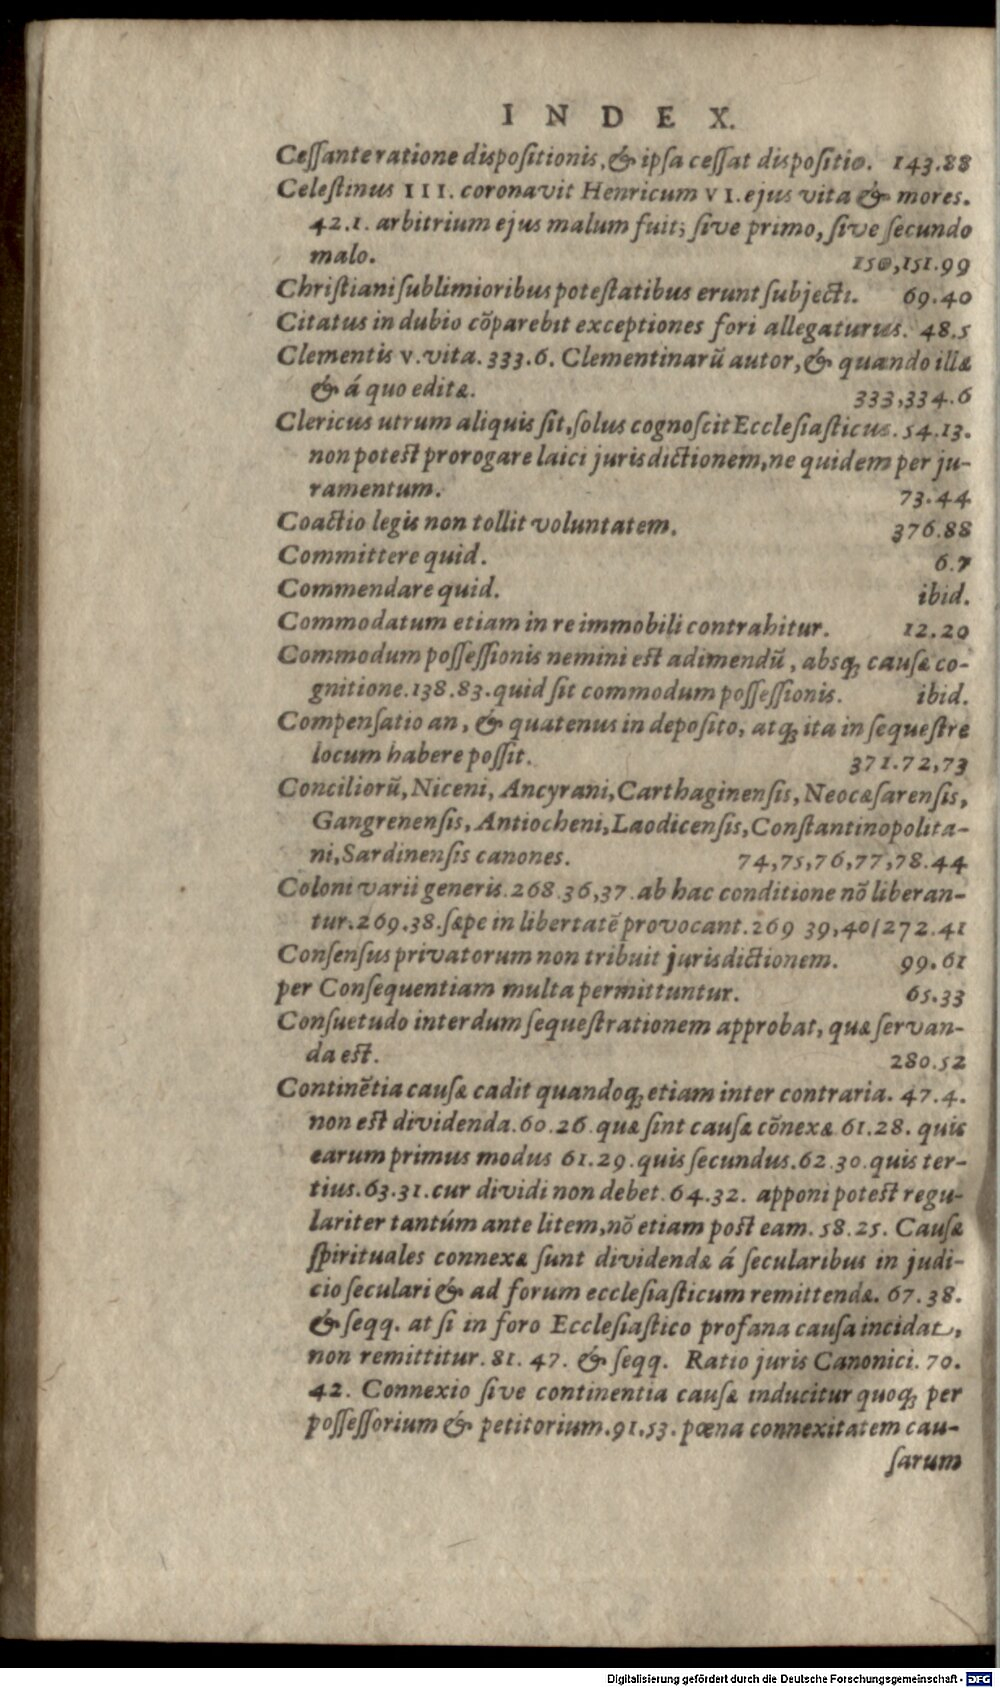 INDEX.
Ceſſante ratione dispoſitionis, & ipſa ceſſat dispoſitio. 143.88
Celeſtinus III. coronavit Henricum VI. ejus vita & mores.
42.1. arbitrium ejus malum fuit; ſive primo, ſive ſecundo
malo. 150,151.99
Chriſtiani ſublimioribus poteſtatibus erunt ſubjecti. 69.40
Citatus in dubio cõparebit exceptiones fori allegaturus. 48.5
Clementis V. vita. 333.6. Clementinarũ autor, & quando illæ
& á quo editæ. 333,334.6
Clericus utrum aliquis ſit, ſolus cognoſcit Eccleſiaſticus. 54.13.
non poteſt prorogare laici jurisdictionem, ne quidem per ju-
ramentum. 73.44
Coactio legis non tollit voluntatem. 376.88
Committere quid. 6.7
Commendare quid. ibid.
Commodatum etiam in re immobili contrahitur. 12.20
Commodum poſſeſſionis nemini eſt adimendũ, absq; cauſæ co-
gnitione. 138.83. quid ſit commodum poſſeſſionis. ibid.
Compenſatio an, & quatenus in depoſito, atq; ita in ſequeſtre
locum habere poſſit. 371.72,73
Conciliorũ, Niceni, Ancyrani, Carthaginenſis, Neocæſarenſis,
Gangrenenſis, Antiocheni, Laodicenſis, Conſtantinopolita-
ni, Sardinenſis canones. 74,75,76,77,78.44
Coloni varii generis. 268.36,37. ab hac conditione nõ liberan-
tur. 269.38. ſæpe in libertatẽ provocant. 269 39,40/272.41
Conſenſus privatorum non tribuit jurisdictionem. 99.61
per Conſequentiam multa permittuntur. 65.33
Conſuetudo interdum ſequeſtrationem approbat, quæ ſervan-
da eſt. 280.52
Continẽtia cauſæ cadit quandoq; etiam inter contraria. 47.4.
non eſt dividenda. 60.26. quæ ſint cauſæ cõnexæ 61.28. quis
earum primus modus 61.29. quis ſecundus. 62.30. quis ter-
tius. 63.31. cur dividi non debet. 64.32. apponi poteſt regu-
lariter tantúm ante litem, nõ etiam poſt eam. 58.25. Cauſæ
ſpirituales connexæ ſunt dividendæ á ſecularibus in judi-
cio ſeculari & ad forum eccleſiaſticum remittendæ. 67.38.
& ſeqq. at ſi in foro Eccleſiaſtico profana cauſa incidat,
non remittitur. 81. 47. & ſeqq. Ratio juris Canonici. 70.
42. Connexio ſive continentia cauſæ inducitur quoq; per
poſſeſſorium & petitorium. 91.53. pœna connexitatem cau-
ſarum
Digitalisierung gefördert durch die Deutsche Forschungsgemeinschaft - DFG